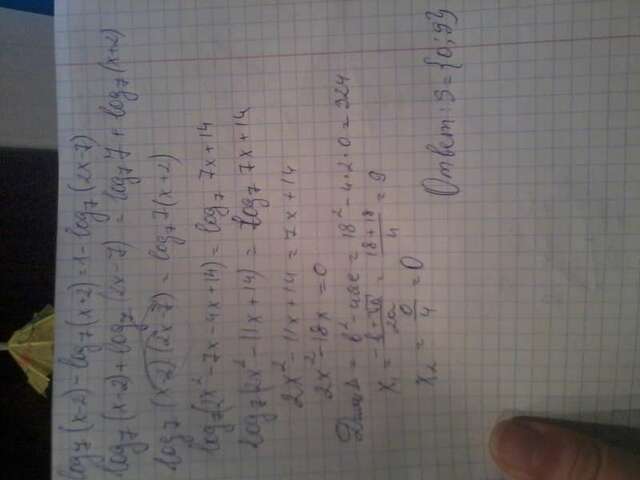 log₇(x-2) - log₇(x+2) = 1 - log₇(2x-7)
log₇(x-2) + log₇(2x-7) = log₇7 + log₇(x+2)
log₇(x-2)(2x-7) = log₇7(x+2)
log₇(2x²-7x-4x+14) = log₇ 7x+14
log₇(2x²-11x+14) = log₇ 7x+14
2x²-11x+14 = 7x+14
2x²-18x=0
Δ = b²-4ac = 18²-4·2·0 = 324
x₁ = (-b+√Δ)/2a = (18+18)/4 = 9
x₂ = 0/4 = 0
Ответ: S={0;9}